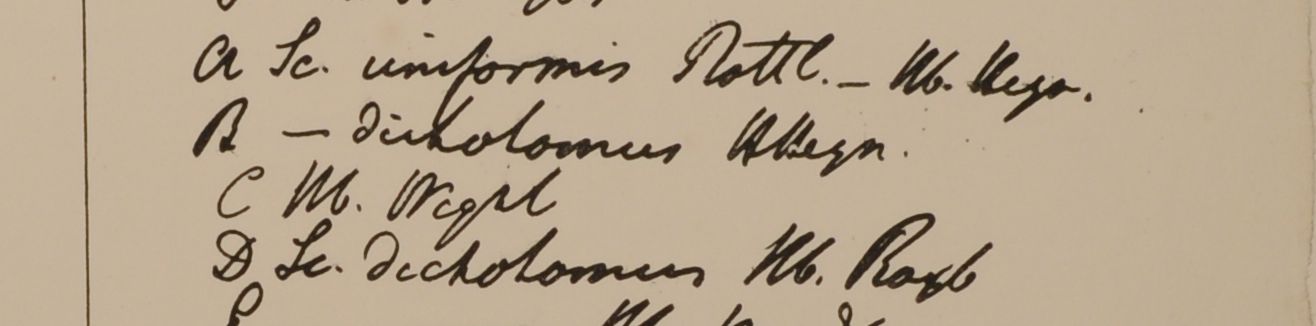 A Sc. uniformis Rottl. — Hb. Heyn.
B — dichotomus HHeyn.
C Hb. Wight
D Sc. dichotomus Hb. Roxb
E